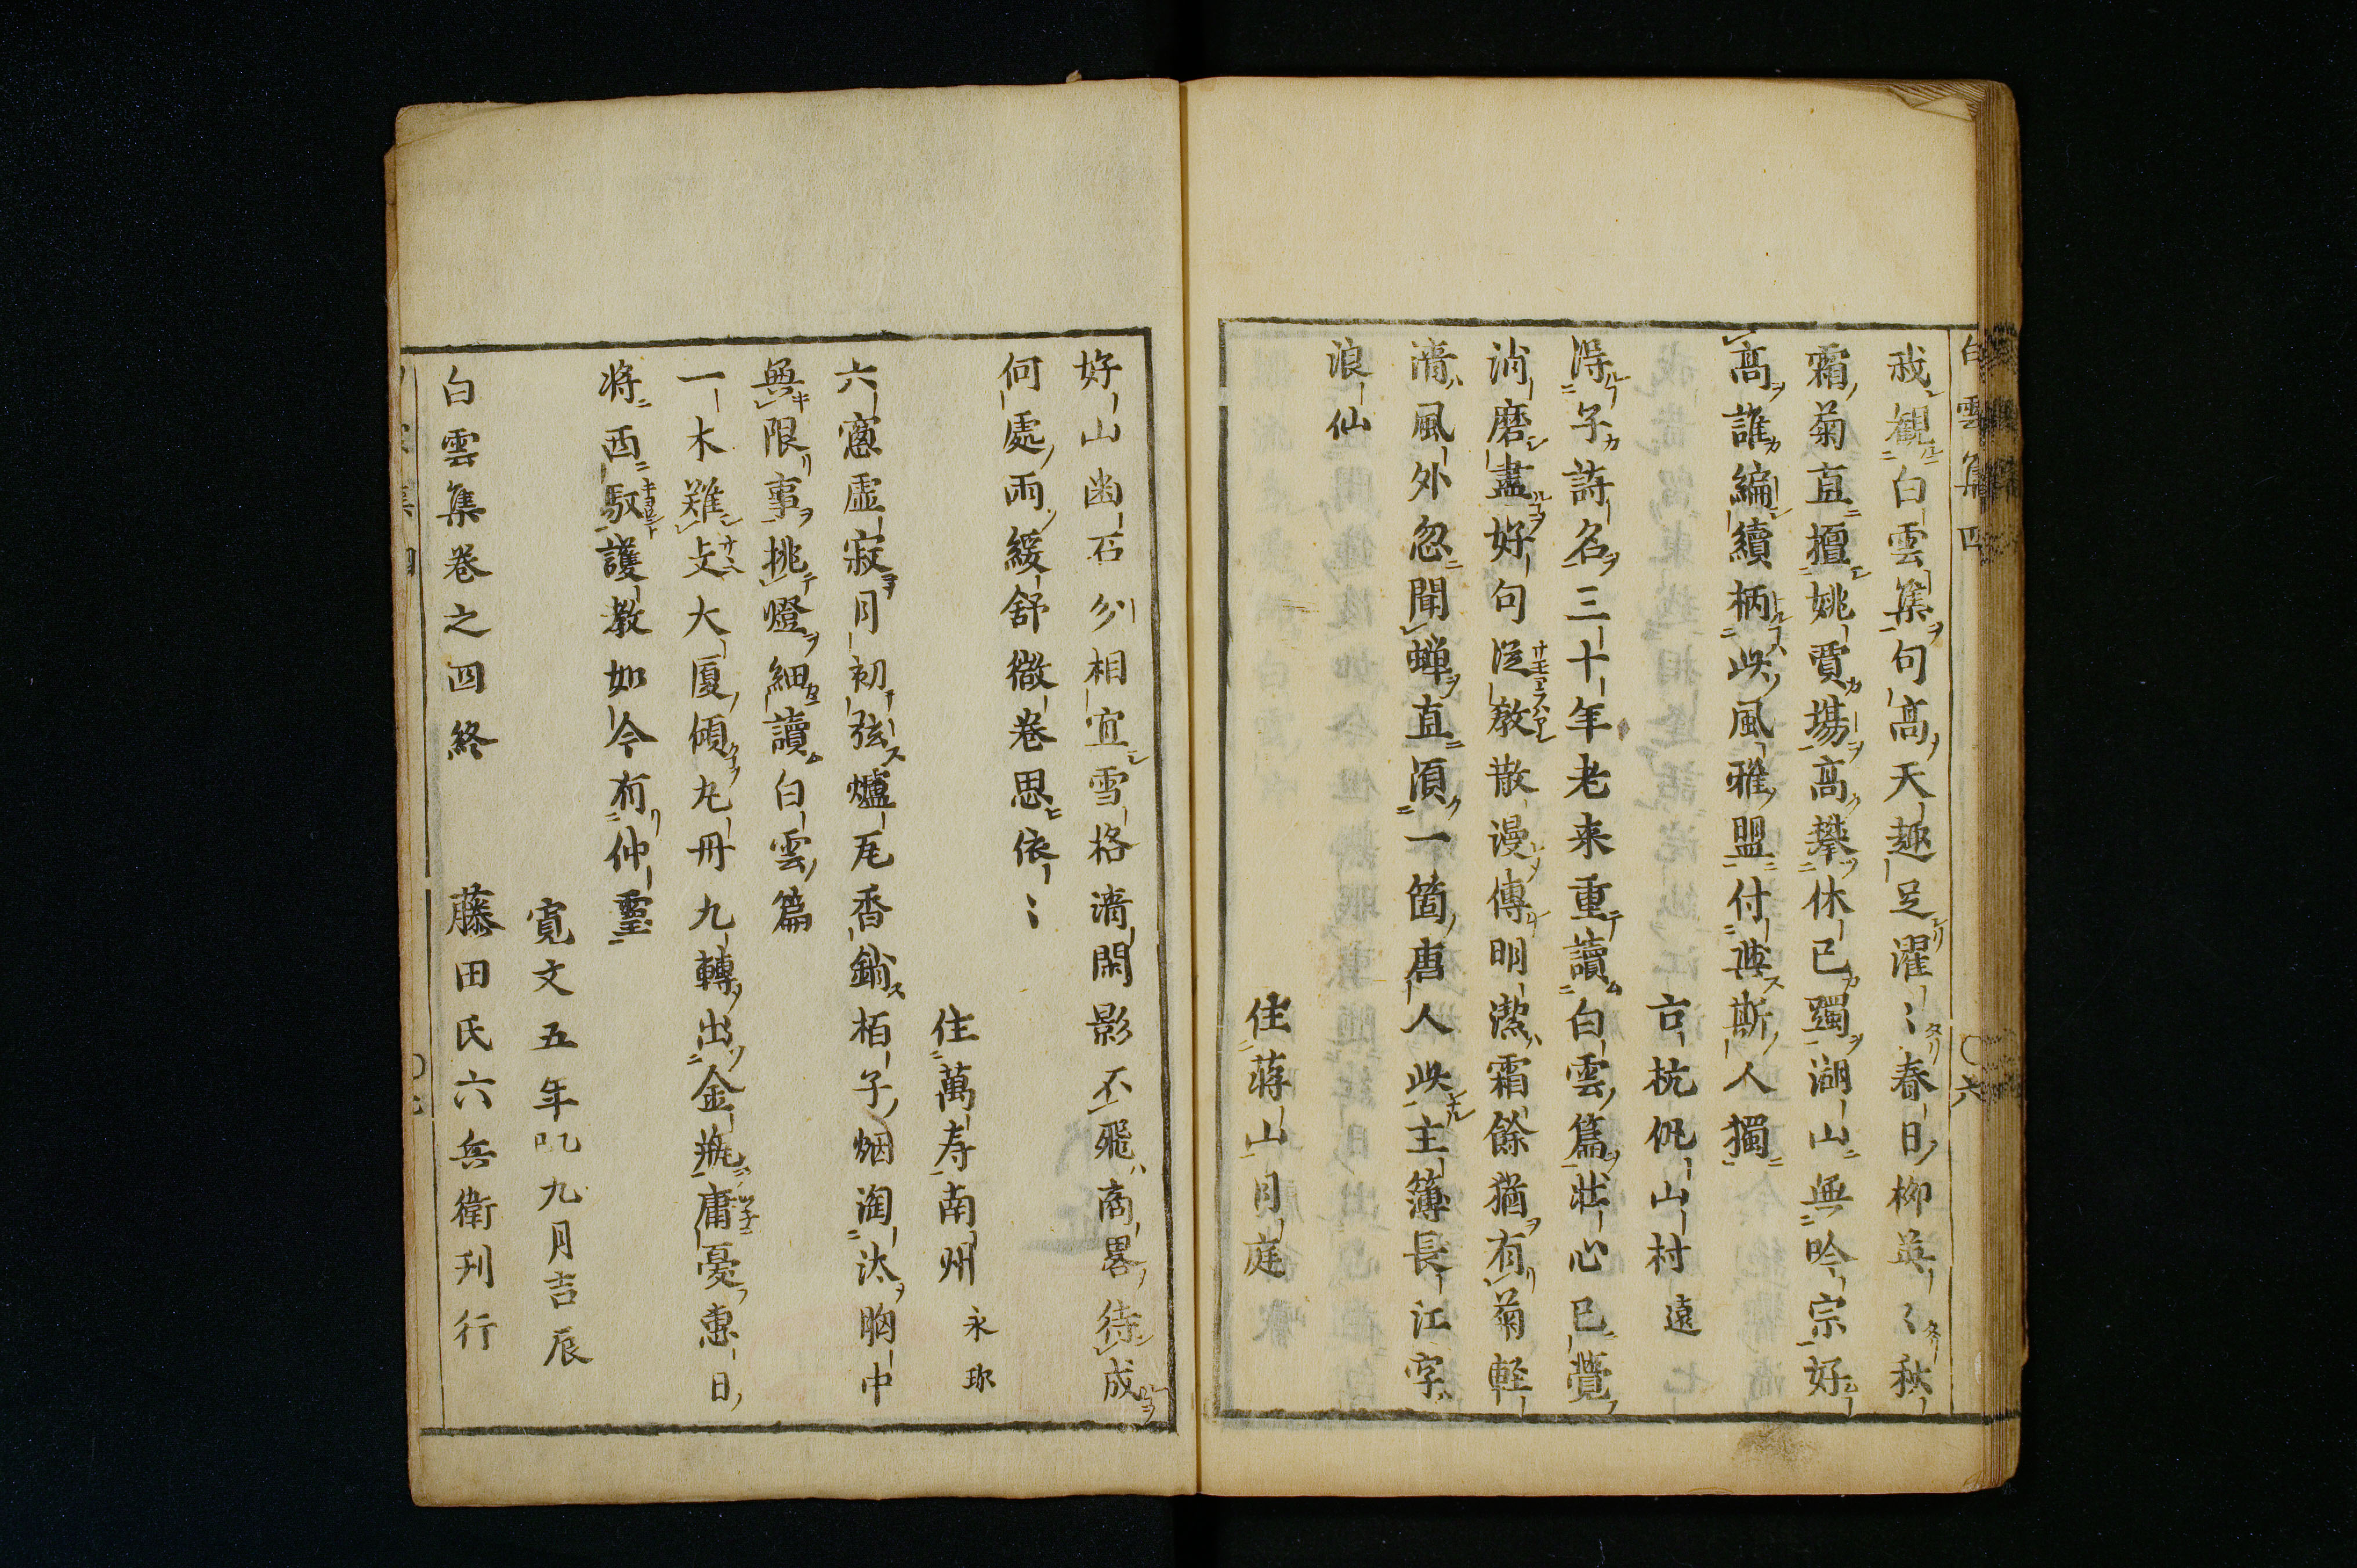 白雲集四 〇六
我觀白雲集句高天趣足濯〻春日柳英〻秋
霜菊直擅姚賈場高攀休已躅湖山無吟宗好
高誰編續柄此風雅盟付與斯人獨
古杭帆山村遠
得子詩名三十年老来重讀白雲篇壮心已覺
消磨盡好句從教散漫傳明潔霜餘猶有菊軽
清風外忽聞蝉直須一箇唐人此主簿長江字
浪仙
住蒋山月庭
好山幽石分相宜雪格清閑影不飛商畧待成
何處雨緩舒微卷思依〻
住萬寿南州永珍
六窓虚寂月初弦爐瓦香銷栢子烟淘汰胸中
無限事挑燈細讀白雲篇
一木難支大厦傾九丹九轉出金瓶庸憂惠日
将西馭護教如今有仲靈
寛文五年乙巳九月吉辰
白雲集卷之四終 藤田氏六兵衛刋行